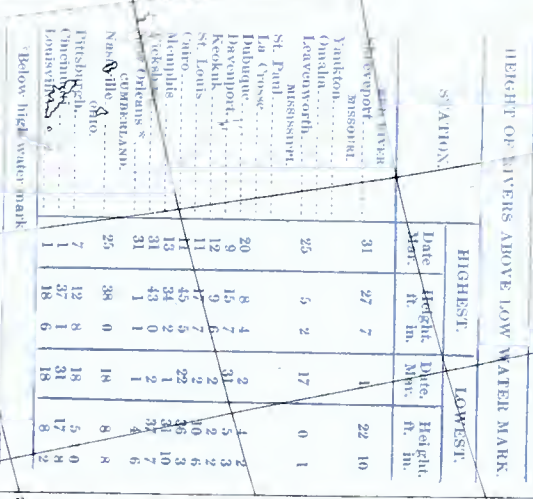 HEIGHT OF RIVERS ABOVE LOW WATER MARK.
STATION. HIGHEST. LOWEST.
Date Mar. Height. ft. in. Date. Mar. Height. ft. in.
RIVER
31 27 7 1 22 10
MISSOURI.
Yankton
Omaha
Leavenworth 25 5 2 17 0 1
MISSISSIPPI.
St. Paul
La Crosse
Dubuque 20 8 4 2 4 2
Davenport 9 15 7 31 5 3
Keokuk 12 9 6 2 2 2
St. Louis 11 17 7 2 10 6
Cairo 11 45 5 22 3
Memphis 13 34 2 1 31 10
Vicksburg 31 43 0 2 37 7
Orleans * 31 1 1 1 4 6
CUMBERLAND.
Nashville 25 38 0 18 8 8
OHIO.
Pittsburgh 7 12 8 18 5 0
Cincinnati 1 37 1 31 17 8
Louisville 1 18 6 18 8 2
*Below high water mark